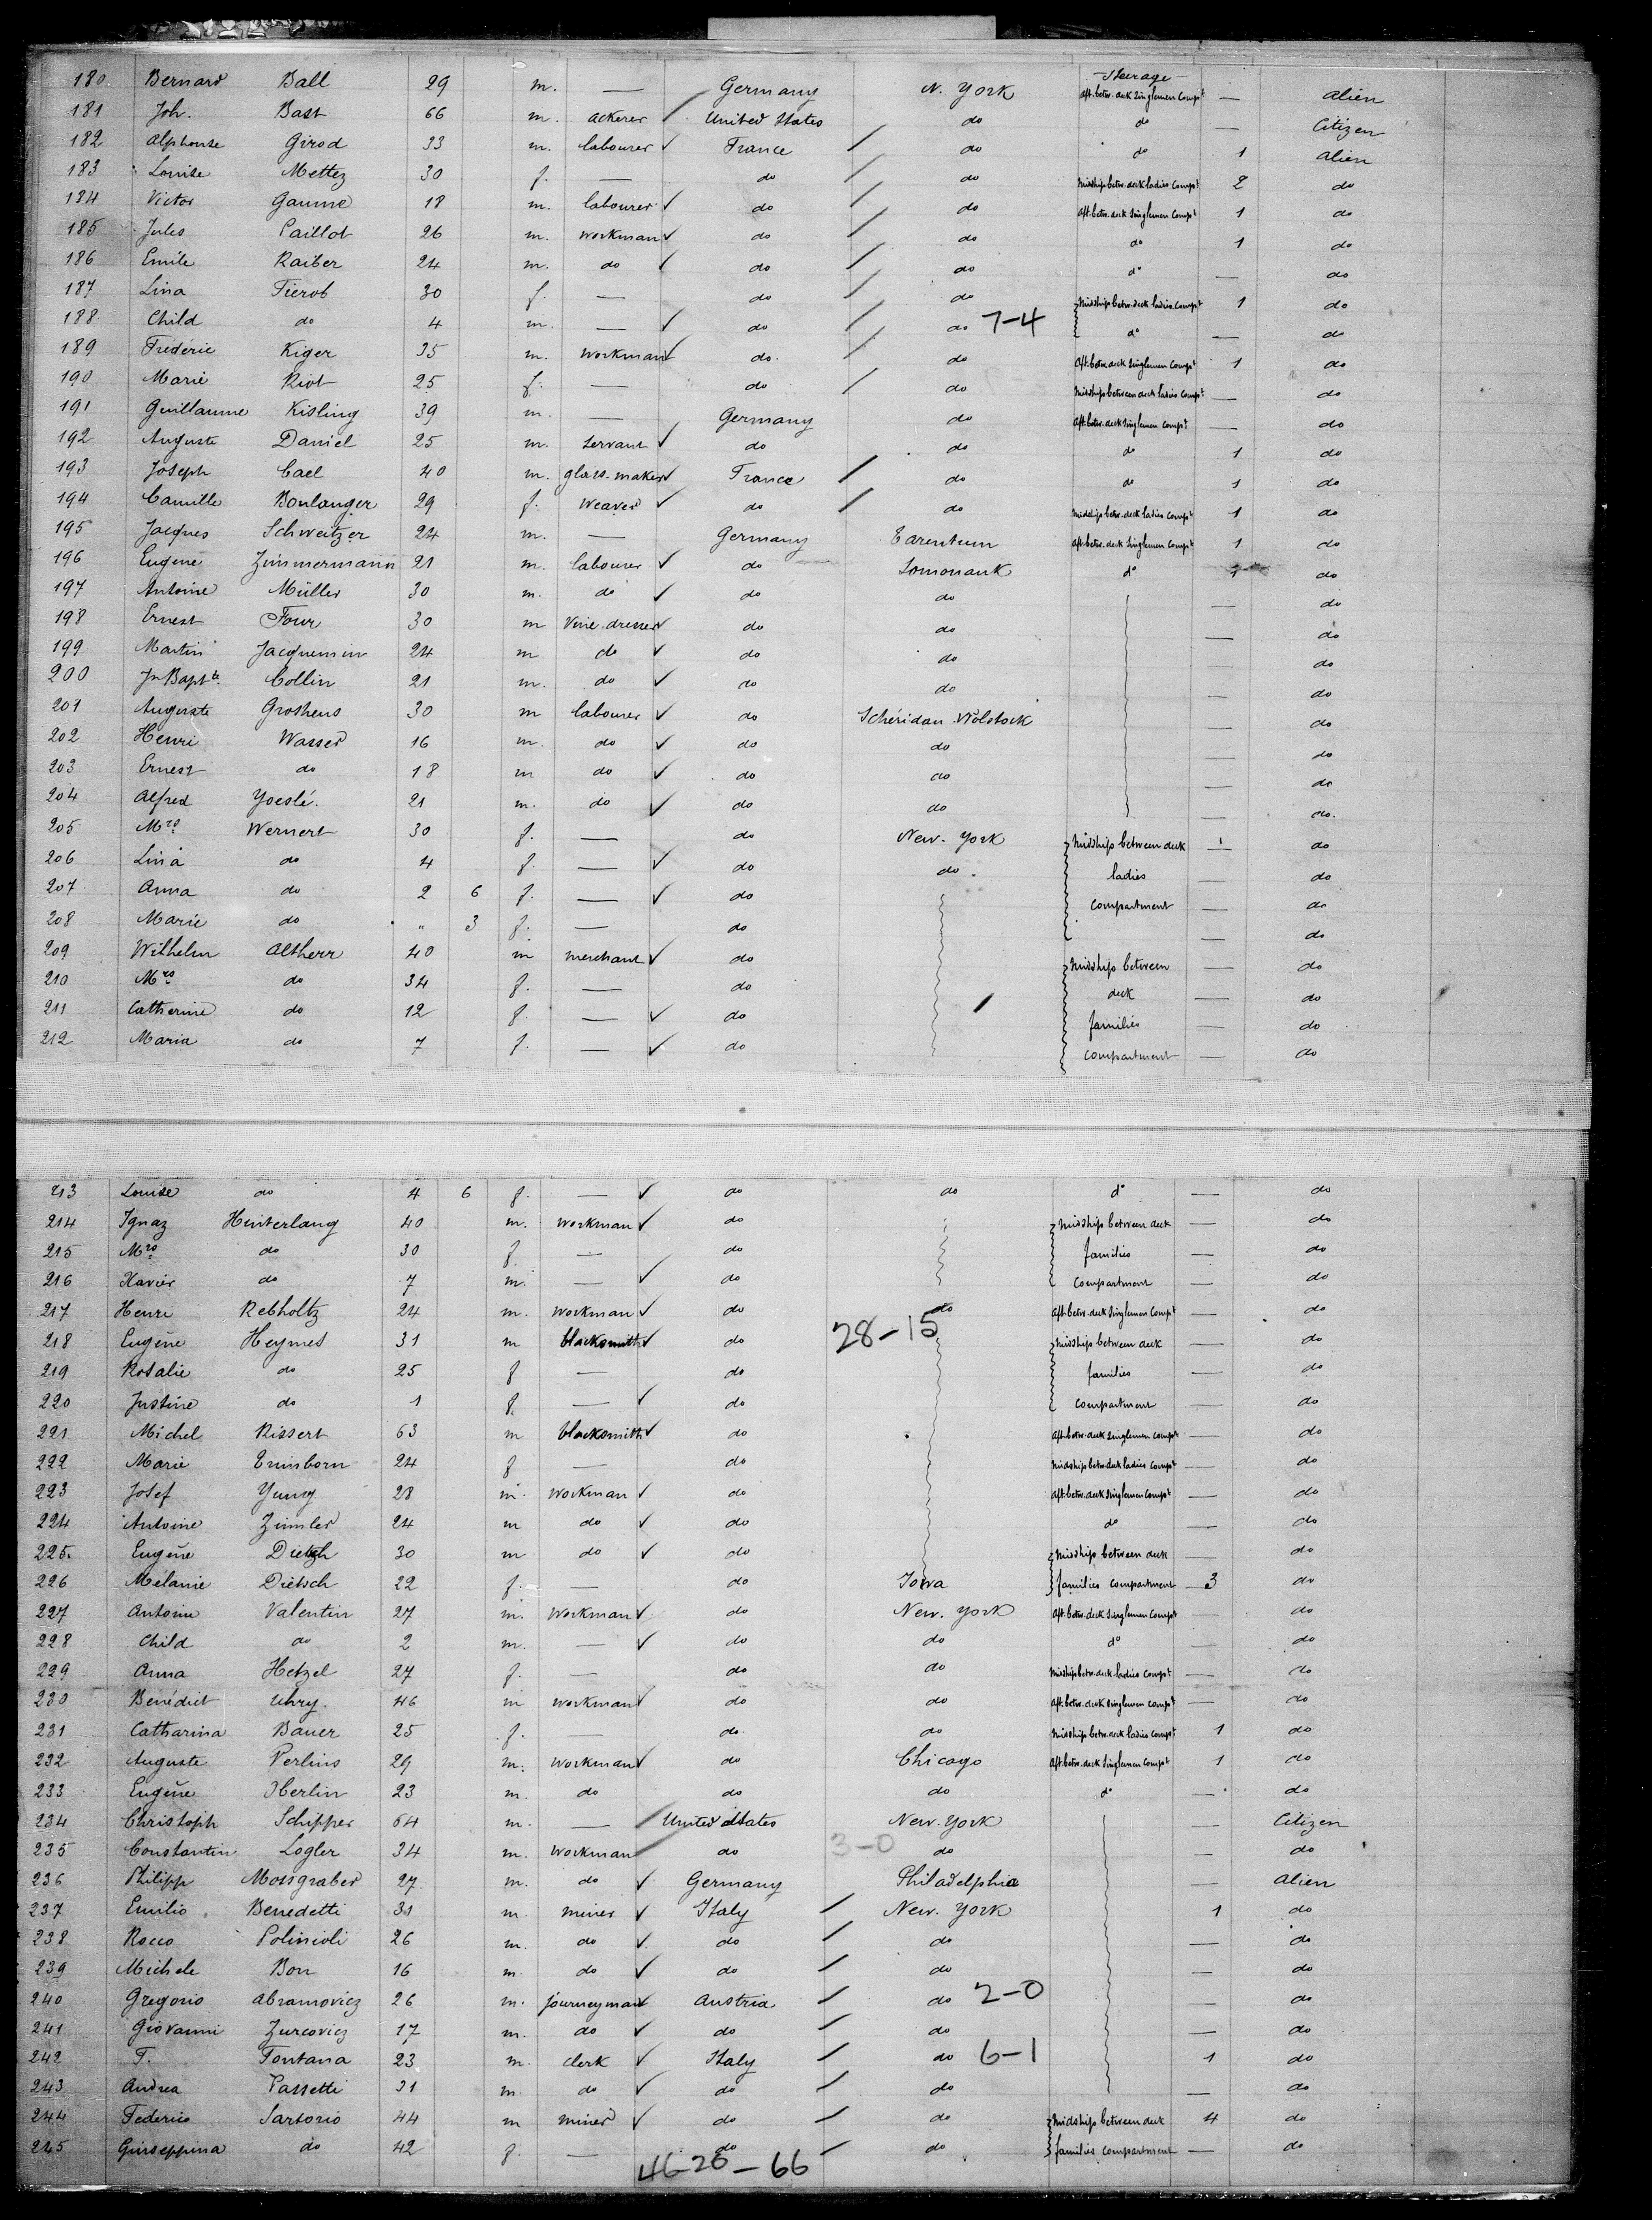 Steerage
180 Bernard Ball 29 m. — Germany N. York Aft. betw. deck singlemen Compt — alien
181 Joh. Bast 66 m. ackerer United States do do — Citizen
182 Alphonse Girod 33 m. labourer ✓ France do do 1 alien
183 Louise Mettez 30 f. — do do Midships betw. deck ladies Compt 2 do
184 Victor Gaume 18 m. labourer ✓ do do Aft. betw. deck singlemen Compt 1 do
185 Jules Paillot 26 m. workman ✓ do do do 1 do
186 Emile Raiber 24 m. do ✓ do do do — do
187 Lina Fierob 30 f. — do do Midships betw. deck ladies Compt 1 do
188 Child do 4 m. — ✓ do do 7-4 do — do
189 Fredéric Kiger 35 m. workman ✓ do do Aft. betw. deck singlemen Compt 1 do
190 Marie Riot 25 f. — do do Midships between deck ladies Compt — do
191 Guillaume Kisling 39 m. — Germany do Aft. betw. deck singlemen Compt — do
192 Auguste Daniel 25 m. servant ✓ do do do 1 do
193 Joseph Cael 40 m. glass-maker ✓ France do do 1 do
194 Camille Boulanger 29 f. weaver ✓ do do Midships betw. deck ladies Compt 1 do
195 Jacques Schweitzer 24 m. — Germany Tarentum Aft. betw. deck singlemen Compt 1 do
196 Eugene Zimmermann 21 m. labourer ✓ do Somonauk do 1 do
197 Antoine Müller 30 m. do ✓ do do — do
198 Ernest Four 30 m Vine-dresser ✓ do do — do
199 Martin Jacquemin 24 m do ✓ do do — do
200 Jn Bapte Collin 21 m. do ✓ do do — do
201 Auguste Groshens 30 m labourer ✓ do Schéridan-Wolstock — do
202 Henri Wasser 16 m. do ✓ do do — do
203 Ernest do 18 m do ✓ do do — do
204 Alfred Yoeslé. 21 m. do ✓ do do — do.
205 Mrs Wernert 30 f. — do New-York Midships between deck — do
206 Lina do 4 f. — ✓ do do. ladies — do
207 Anna do 2 6 f. — ✓ do compartment — do
208 Marie do " 3 f. — do — do
209 Wilhelm Altherr 40 m merchant ✓ do Midships between — do
210 Mrs do 34 f. — do deck — do
211 Catherine do 12 f. — ✓ do families — do
212 Maria do 7 f. — ✓ do compartment — do
213 Louise do 4 6 f. — ✓ do do do — do
214 Ignaz Hinterlang 40 m. workman ✓ do Midships between deck — do
215 Mrs do 30 f — do families — do
216 Xavier do 7 m. — ✓ do compartment — do
217 Henri Rebholtz 24 m. workman ✓ do do Aft. betw. deck singlemen Compt — do
218 Eugène Heymes 31 m blacksmith ✓ do 28-15 Midships between deck — do
219 Rosalie do 25 f — do families — do
220 Justine do 1 f. — ✓ do compartment — do
221 Michel Rissert 63 m blacksmith ✓ do Aft. betw. deck singlemen Compt — do
222 Marie Ermborn 24 f — do Midships betw. deck ladies Compt — do
223 Josef Yung 28 m. workman ✓ do Aft. betw. deck singlemen Compt — do
224 Antoine Zimler 24 m do ✓ do do — do
225. Eugène Dietsh 30 m do ✓ do Midships between deck — do
226 Mélanie Dietsch 22 f. — do Iowa families compartment 3 do
227 Antoine Valentin 27 m. workman ✓ do New-York Aft. betw. deck singlemen Compt — do
228 Child do 2 m. — ✓ do do do — do
229 Anna Hetzel 27 f. — do do Midships betw. deck ladies Compt — do
230 Benédict Uhry. 46 m workman ✓ do do Aft. betw. deck singlemen Compt — do
231 Catharina Bauer 25 f. — do. do Midships betw. deck ladies Compt 1 do
232 Auguste Perlins 29 m. workman ✓ do Chicago Aft. betw. deck singlemen Compt 1 do
233 Eugène Oberlin 23 m. do do do do — do
234 Christoph Schipper 64 m. — United States New-York — Citizen
235 Constantin Logler 34 m. workman do 3-0 do — do
236 Philipp Mossgraber 27 m. do ✓ Germany Philadelphia — alien
237 Emilio Benedetti 31 m. miner ✓ Italy New-York 1 do
238 Rocco Polinioli 26 m. do ✓ do do — do
239 Michele Bon 16 m. do ✓ do do — do
240 Gregorio Abramovicz 26 m. journeyman ✓ Austria do 2-0 — do
241 Giovanni Zurcovicz 17 m. do ✓ do do — do
242 F. Fontana 23 m. clerk ✓ Italy do 6-1 1 do
243 Andrea Passetti 31 m. do ✓ do do — do
244 Federico Sartorio 44 m miner ✓ do do Midships between deck 4 do
245 Giuseppina do 42 f. — do do families compartment — do
46-26-66